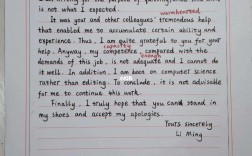 is not what I expected.
warmhearted
It was your and other colleagues' tremendous help
that enabled me to accumulate certain ability and
experience. Thus, I am quite grateful to you for your
capacity
help. Anyway, my competence, compared with the
enough
demands of this job, is not adequate and I cannot do
it well. In addition, I am keen on computer science
rather than editing. To conclude, it is not advisable
for me to continue this work.
Finally, I truly hope that you can stand in
my shoes and accept my apologies.
Yours sincerely
Li Ming